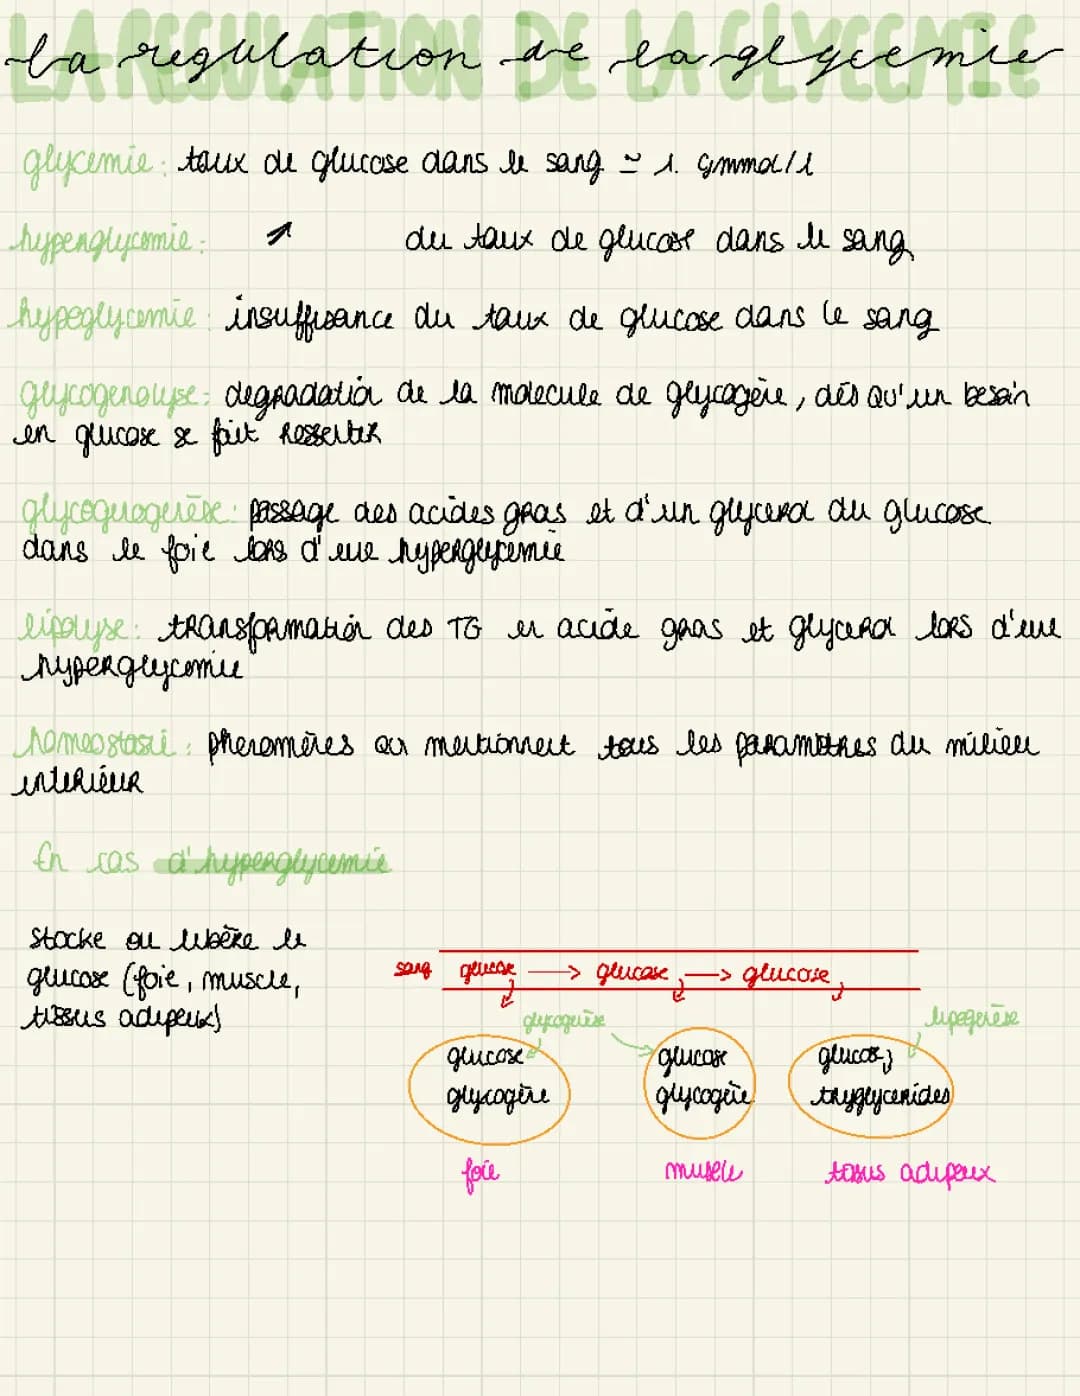 LA REGULATION DE LA GLYCEMIE
la regulation de la glycemie
glycemie: taux de glucose dans le sang ≃ 1. Gmmol/l
hyperglycemie: ↗ du taux de glucose dans le sang
hypeglycemie: insuffisance du taux de glucose dans le sang
glycogenolyse: degradation de la molecule de glycogène, dés qu'un besoin
en glucose se fait ressentir
passage des acides gras et d'un glycerol du glucose
dans le foie lors d'une hyperglycemie
lipolyse: transformation des TG en acide gras et glycerol lors d'une
hyperglycemie
homeostasie: phenomènes qui mentionnent tous les paramètres du milieu
interiéur
En cas d'hyperglycemie
stocke ou libère le
glucose (foie, muscle,
tissus adipeux)
sang glucose → glucose → glucose
lipogenèse
glucose glucose glucose
glycogène glycogène tryglycerides
foie muscle tissus adipeux